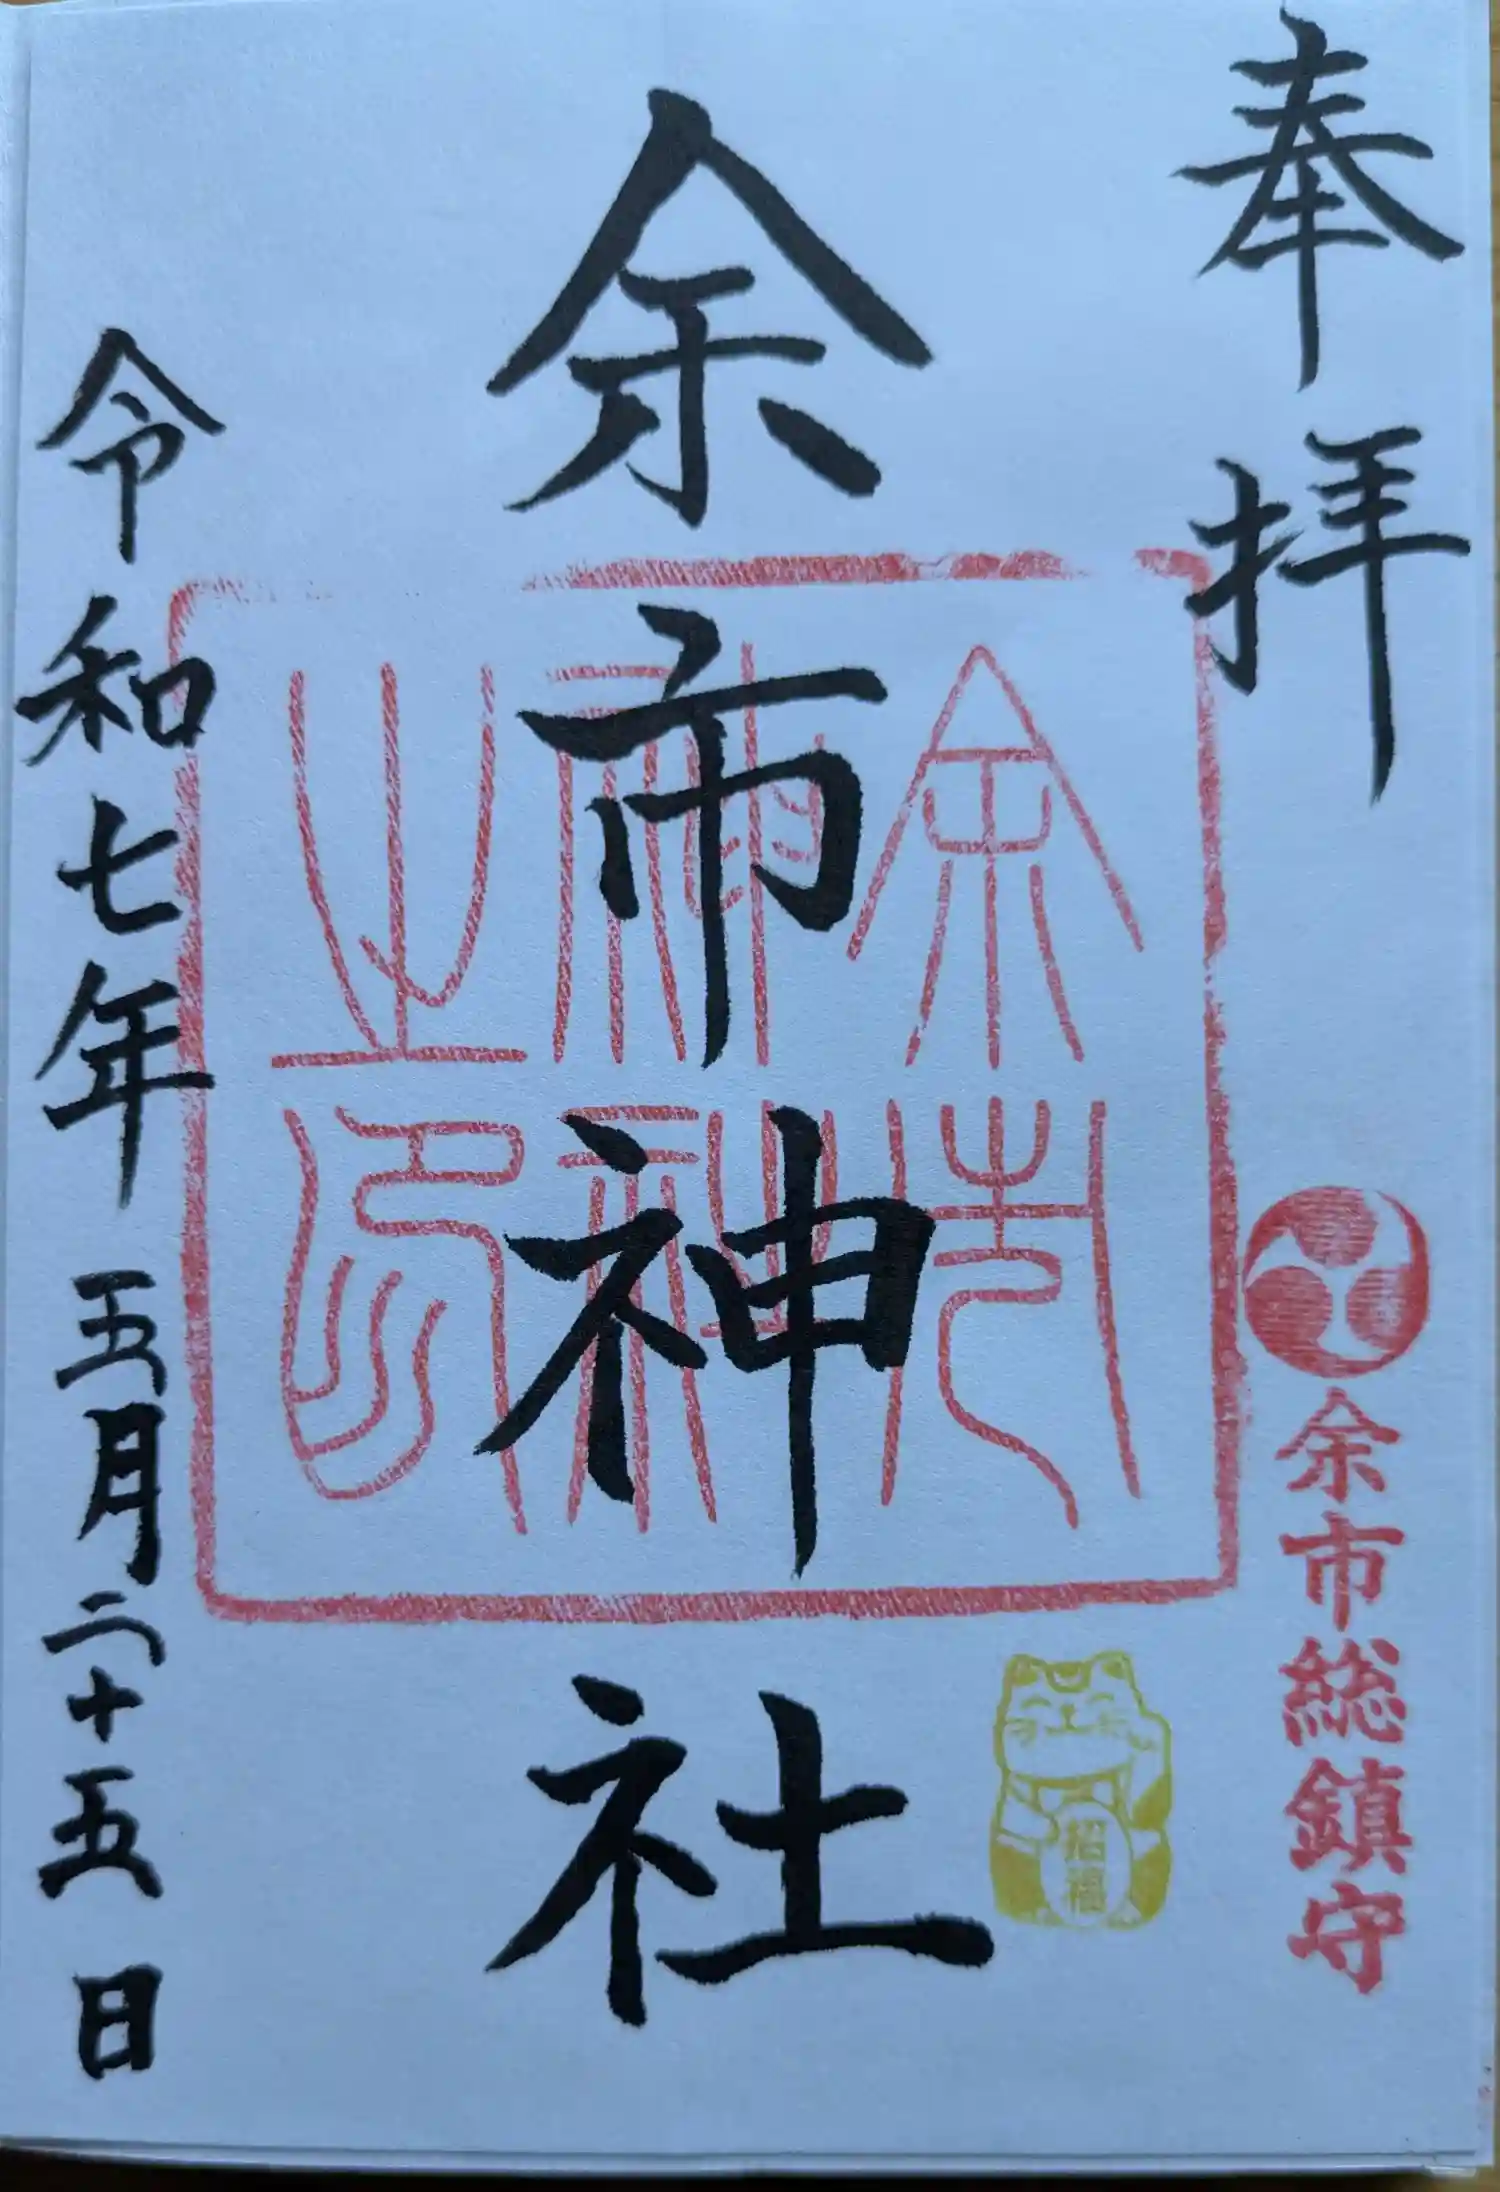 奉拝
余市総鎮守
余市神社
余市神社之印
招福
令和七年五月二十五日